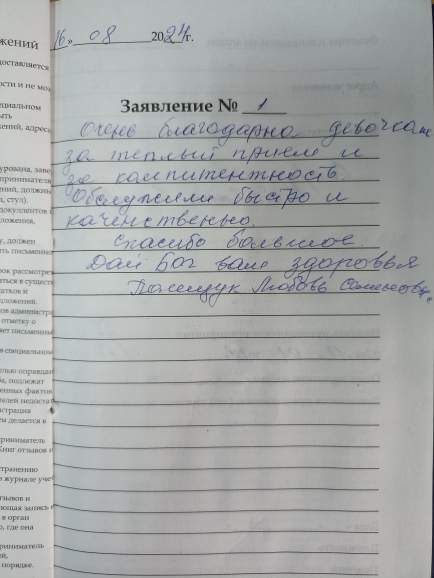 жений
оставляется
ости и не мо
ециальном
ыть
ений, адреса
урована, заве
принимателя
ений, должны
а, стул).
докуллентов о
ложения,
у, должен
ть письменно
рок рассмотрен
аться в существ
атков и
дложений.
ов администра
отметку о
ет письменный
в специальном
елью оправдан
ба, подлежат
енных фактов
елей недоста
истрация
ем делается в
приниматель
ниг отзывов и
странению
в журнале уче
тзывов и
ющая запись
в орган
о, где она
приниматель
ей,
порядке.
16» 08 2024г.
Заявление № 1
Очень благодарна девочкам
за теплый прием и
за компитентность.
Обслужили быстро и
качественно.
Спасибо большое
Дай Бог вам здоровья
Любовь